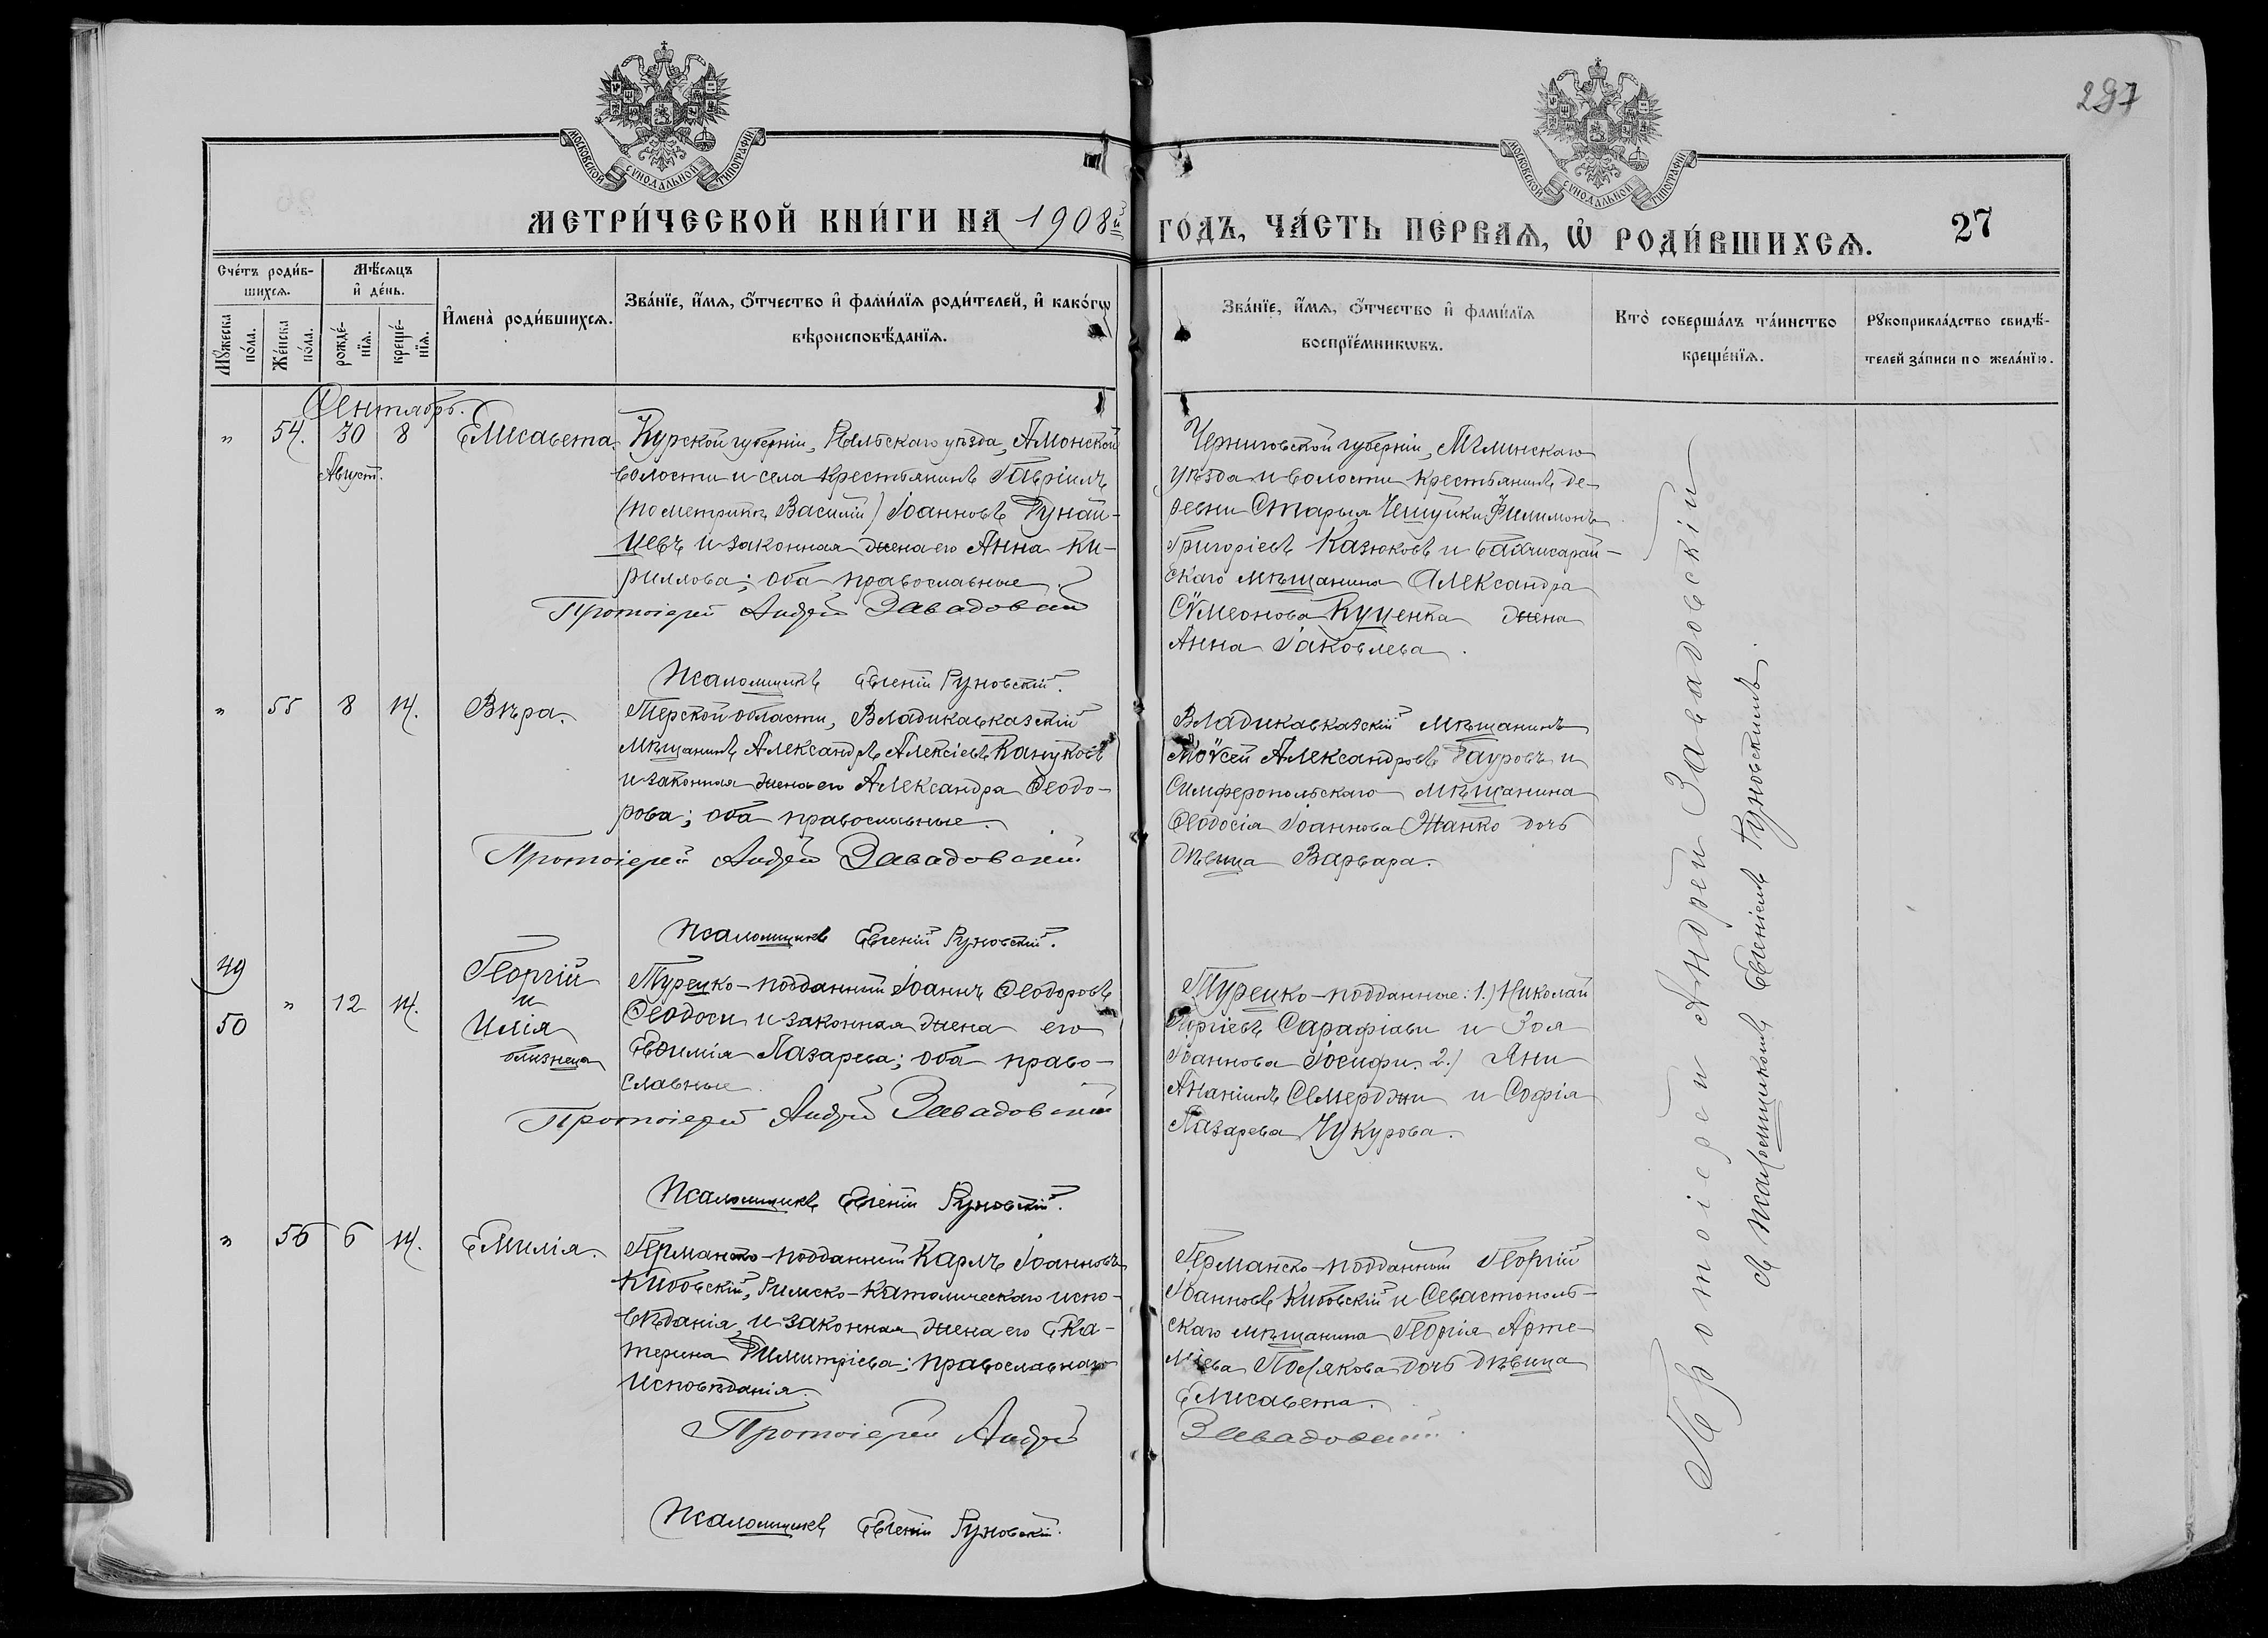 297
МОСКОВСКОЙ СѴНОДАЛЬНОЙ ТИПОГРАФІИ
МОСКОВСКОЙ СѴНОДАЛЬНОЙ ТИПОГРАФІИ
МЕТРИ́ЧЕСКОЙ КНИ́ГИ НА 1908й ГО́ДЪ, ЧА́СТЬ ПЕ́РВАѦ, Ѡ҆ РОДИ́ВШИХСѦ. 27
Сче́тъ роди́в-
шихсѧ.
Мꙋ́жеска по́ла.
Же́нска по́ла.
Мѣ́сѧцъ
и҆ де́нь.
рожде́-
нїѧ.
креще́-
нїѧ.
И҆мена̀ роди́вшихсѧ.
Зва́нїе, и҆́мѧ, о҆́тчество и҆ фами́лїѧ роди́телей, и҆ како́гѡ
вѣроисповѣ́данїѧ.
Зва́нїе, и҆́мѧ, о҆́тчество и҆ фами́лїѧ
воспрїе́мникѡвъ.
Кто̀ соверша́лъ та́инство
креще́нїѧ.
Рꙋкоприкла́дство свидѣ́-
телей за́писи по жела́нїю.
Сентябрь.
„ 54. 30 8 Елисавета.
Август.
Курской губерніи, Рыльскаго уѣзда, Амонской
волости и села крестьянинъ Гавріилъ
(по метрикѣ Василій) Іоанновъ Дунай-
цевъ и законная жена его Анна Ки-
риллова; оба православные.
Протоіерей Андрей Завадовскій
Псаломщикъ Евгеній Руновскій.
Черниговской губерніи, Мглинскаго
уѣзда и волости крестьянинъ де-
ревни Старыя Чешуйки Филимонъ
Григоріевъ Казюковъ и бахчисарай-
скаго мѣщанина Александра
Сѵмеонова Куценка жена
Анна Іаковлева.
„ 55 8 14. Вѣра.
Терской области, Владикавказскій
мѣщанинъ Александръ Алексіевъ Кануковъ
и законная жена его Александра Ѳеодо-
рова; оба православные.
Протоіерей Андрей Завадовскій
Псаломщикъ Евгеній Руновскій.
Владикавказскій мѣщанинъ
Моѵсей Александровъ Гауровъ и
Симферопольскаго мѣщанина
Ѳеодосія Іоаннова Жанко дочь
дѣвица Варвара.
49
50
„ 12 14.
Георгій
и
Илія
близнеца
Турецко-подданный Іоаннъ Ѳеодоровъ
Ѳеодоси и законная жена его
Евѳимія Лазарева; оба право-
славные.
Протоіерей Андрей Завадовскій
Псаломщикъ Евгеній Руновскій.
Турецко-подданные: 1.) Николай
Георгіевъ Сарафіави и Зоя
Іоаннова Іосифи. 2.) Яни
Ананіинъ Семерджи и Софія
Лазарева Чукурова.
„ 56 6 14. Емилія.
Германско-подданный Карлъ Іоанновъ
Кибовскій, Римско-Католическаго испо-
вѣданія, и законная жена его Ека-
терина Димитріева; православнаго
исповѣданія.
Протоіерей Андрей Завадовскій.
Псаломщикъ Евгеній Руновскій.
Германско-подданный Георгій
Іоанновъ Кибовскій и Севастополь-
скаго мѣщанина Георгія Арте-
міева Полякова дочь дѣвица
Елисавета.
Протоіерей Андрей Завадовскій
съ псаломщикомъ Евгеніемъ Руновскимъ.